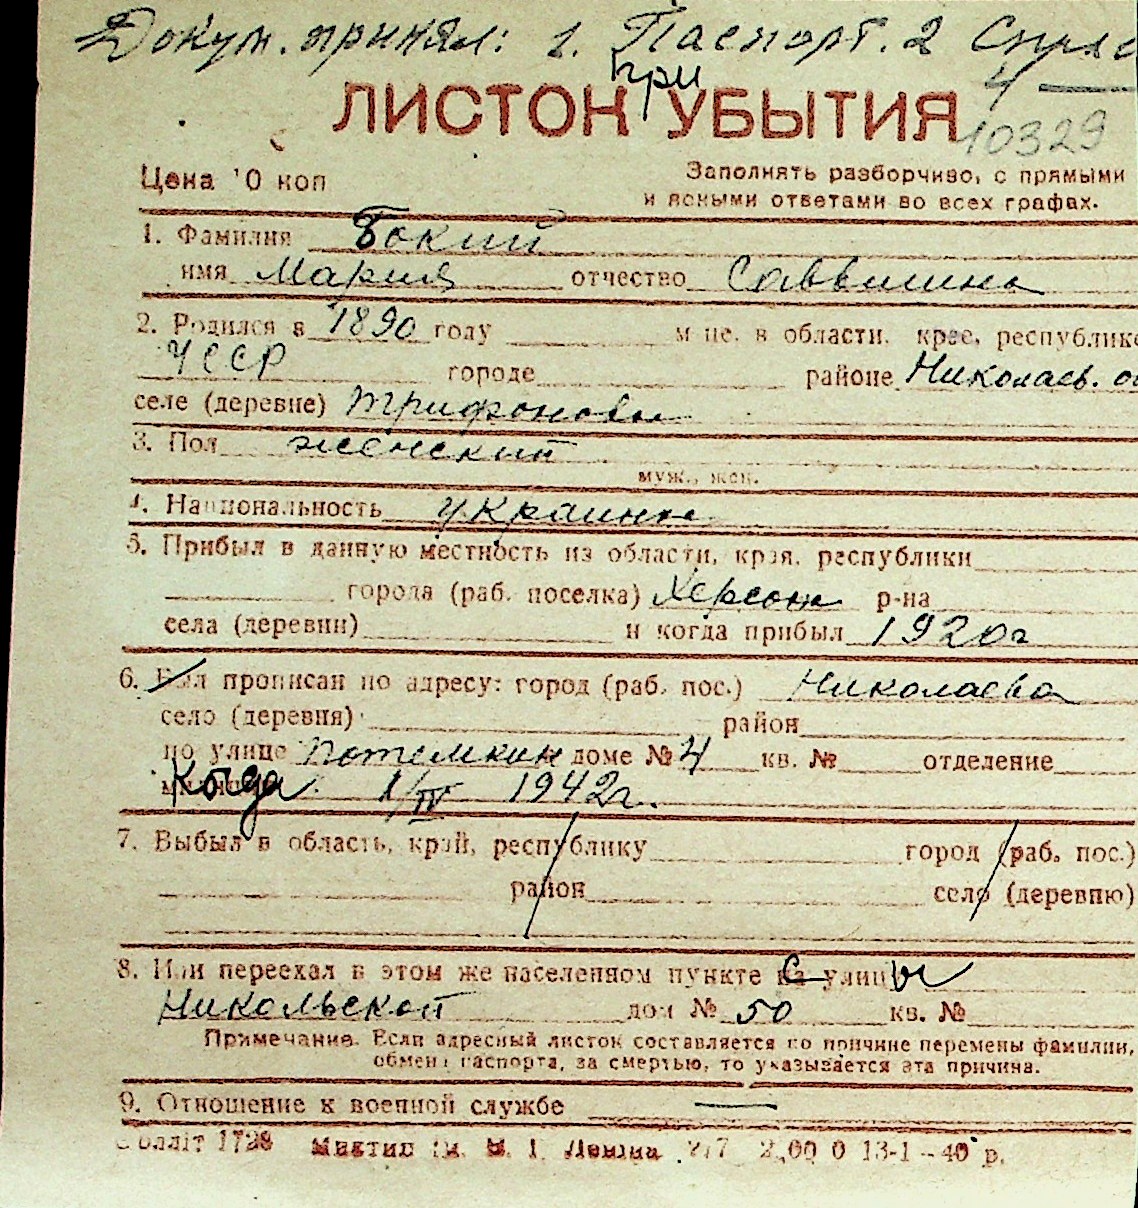 Докум. принял: 1. Паспорт. 2
при 4 —
ЛИСТОК УБЫТИЯ
10329
Цена 10 коп
Заполнять разборчиво, с прямыми
и ясными ответами во всех графах.
1. Фамилия Бокий
имя Мария отчество Саввишна
2. Родился в 1890 году м-це, в области, крае, республике
УССР городе районе Николаев.
селе (деревне) Трифоновка
3. Пол женский
муж., жен.
4. Национальность украинка
5. Прибыл в данную местность из области, края, республики
города (раб. поселка) Херсон р-на
села (деревни) и когда прибыл 1920г
6. Был прописан по адресу: город (раб. пос.) Николаева
село (деревня) район
по улице Потемкин доме № 4 кв. № отделение
Когда 1/IV 1942г.
7. Выбыл в область, край, республику город (раб. пос.)
район село (деревню)
8. Или переехал в этом же населенном пункте с улицы
Никольской дом № 50 кв. №
Примечание. Если адресный листок составляется по причине перемены фамилии,
обмена паспорта, за смертью, то указывается эта причина.
9. Отношение к военной службе —
1728 Миктип ім. В. І. Леніна 13-1-40 р.